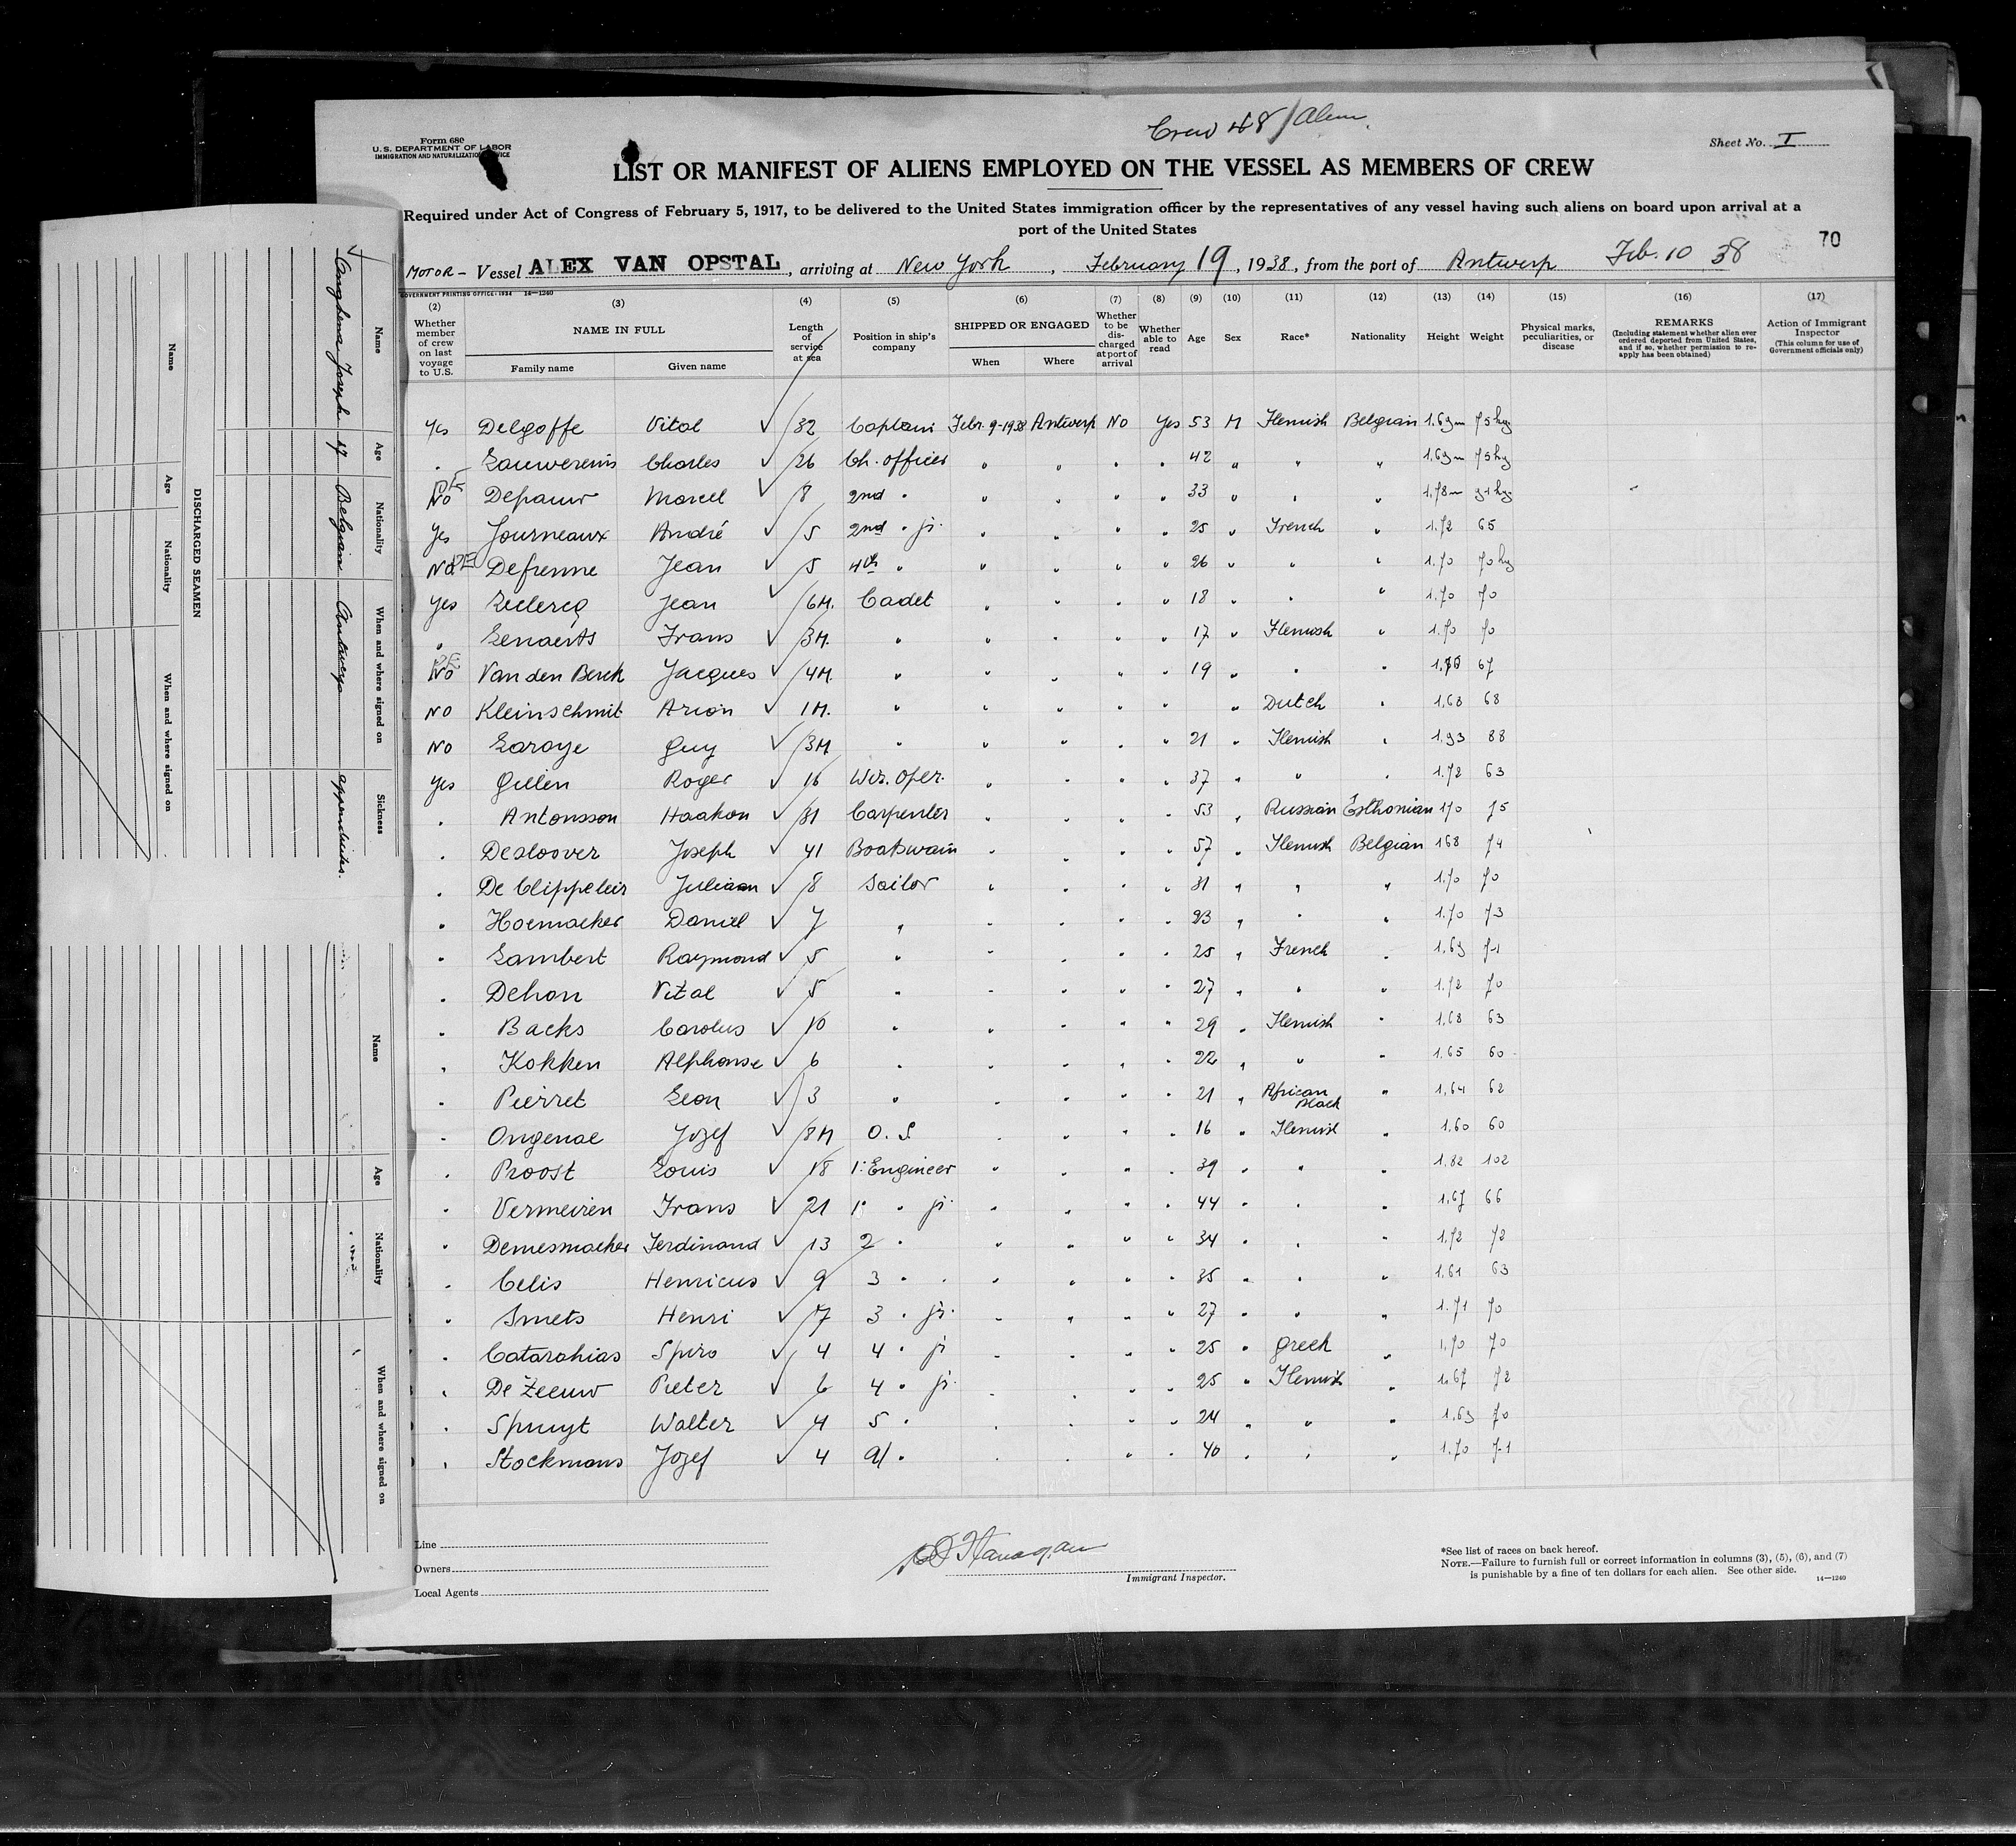 Crew 48/Alien
Form 680
U.S. DEPARTMENT OF LABOR
IMMIGRATION AND NATURALIZATION SERVICE
Sheet No. I
LIST OR MANIFEST OF ALIENS EMPLOYED ON THE VESSEL AS MEMBERS OF CREW
Required under Act of Congress of February 5, 1917, to be delivered to the United States immigration officer by the representatives of any vessel having such aliens on board upon arrival at a
port of the United States
70
MOTOR - Vessel ALEX VAN OPSTAL, arriving at New York, February 19, 1938, from the port of Antwerp Feb. 10 38
GOVERNMENT PRINTING OFFICE: 1934 14—1240
(2) Whether member of crew on last voyage to U.S.
(3) NAME IN FULL Family name Given name
(4) Length of service at sea
(5) Position in ship's company
(6) SHIPPED OR ENGAGED When Where
(7) Whether to be discharged at port of arrival
(8) Whether able to read
(9) Age
(10) Sex
(11) Race*
(12) Nationality
(13) Height
(14) Weight
(15) Physical marks, peculiarities, or disease
(16) REMARKS (Including statement whether alien ever ordered deported from United States, and if so, whether permission to reapply has been obtained)
(17) Action of Immigrant Inspector (This column for use of Government officials only)
Yes Delgoffe Vital 32 Captain Febr. 9-1938 Antwerp No Yes 53 M Flemish Belgian 1.69m 75kg
" Lauwereins Charles 26 Ch. officer " " " " 42 " " " 1.69m 75kg
No Depauw Marcel 8 2nd " " " " " 33 " " " 1.78m 91kg
Yes Journeaux André 5 2nd " jr. " " " " 25 " French " 1.72 65
No Defrenne Jean 5 4th " " " " " 26 " " " 1.70 70kg
Yes Leclercq Jean 6M. Cadet " " " " 18 " " " 1.70 70
" Lenaerts Frans 3M. " " " " " 17 " Flemish " 1.70 70
No Van den Berck Jacques 4M. " " " " " 19 " " " 67
No Kleinschmit Arion 1M. " " " " " " Dutch " 1.68 68
No Laroye Guy 3M " " " " " 21 " Flemish " 1.93 88
Yes Gillen Roger 16 Wir. Oper. " " " " 37 " " " 1.72 63
" Antonsson Haakon 31 Carpenter " " " " 53 " Russian Esthonian 170 75
" Desloover Joseph 41 Boatswain " " " " 57 " Flemish Belgian 168 74
" De Clippeleir Juliaan 8 Sailor " " " " 31 " " " 1.70 70
" Hoemaeker Daniel 7 " " " " " 23 " " " 1.70 73
" Lambert Raymond 5 " " " " " 25 " French " 1.69 71
" Dehon Vital 5 " " " " " 27 " " " 1.72 70
" Backs Carolus 10 " " " " " 29 " Flemish " 1.68 63
" Kokken Alphonse 6 " " " " " 22 " " " 1.65 60
" Pierret Leon 3 " " " " " 21 " African Black " 1.64 62
" Ongenae Jozef 8M O. S. " " " " 16 " Flemish " 1.60 60
" Proost Louis 18 1: Engineer " " " " 39 " " " 1.82 102
" Vermeiren Frans 21 1" " jr " " " " 44 " " " 1.67 66
" Demesmaeker Ferdinand 13 2 " " " " " 34 " " " 1.72 72
" Celis Henricus 9 3 " " " " " 35 " " " 1.61 63
" Smets Henri 7 3 " jr. " " " " 27 " " " 1.71 70
" Catarahias Spiro 4 4 " jr " " " " 25 " Greek " 1.70 70
" De Zeeuw Pieter 6 4 " jr. " " " " 25 " Flemish " 1.67 72
" Spruyt Walter 4 5 " " " " " 24 " " " 1.69 70
" Stockmans Jozef 4 " " " " " 40 " " " 1.70 71
Line
Owners
Local Agents
Flanagan
Immigrant Inspector.
*See list of races on back hereof.
NOTE.—Failure to furnish full or correct information in columns (3), (5), (6), and (7)
is punishable by a fine of ten dollars for each alien. See other side.
14—1240
DISCHARGED SEAMEN
Name Age Nationality When and where signed on
Name Age Nationality When and where signed on Sickness
Joseph 17 Belgian Antwerp appendicitis.
Name Age Nationality When and where signed on